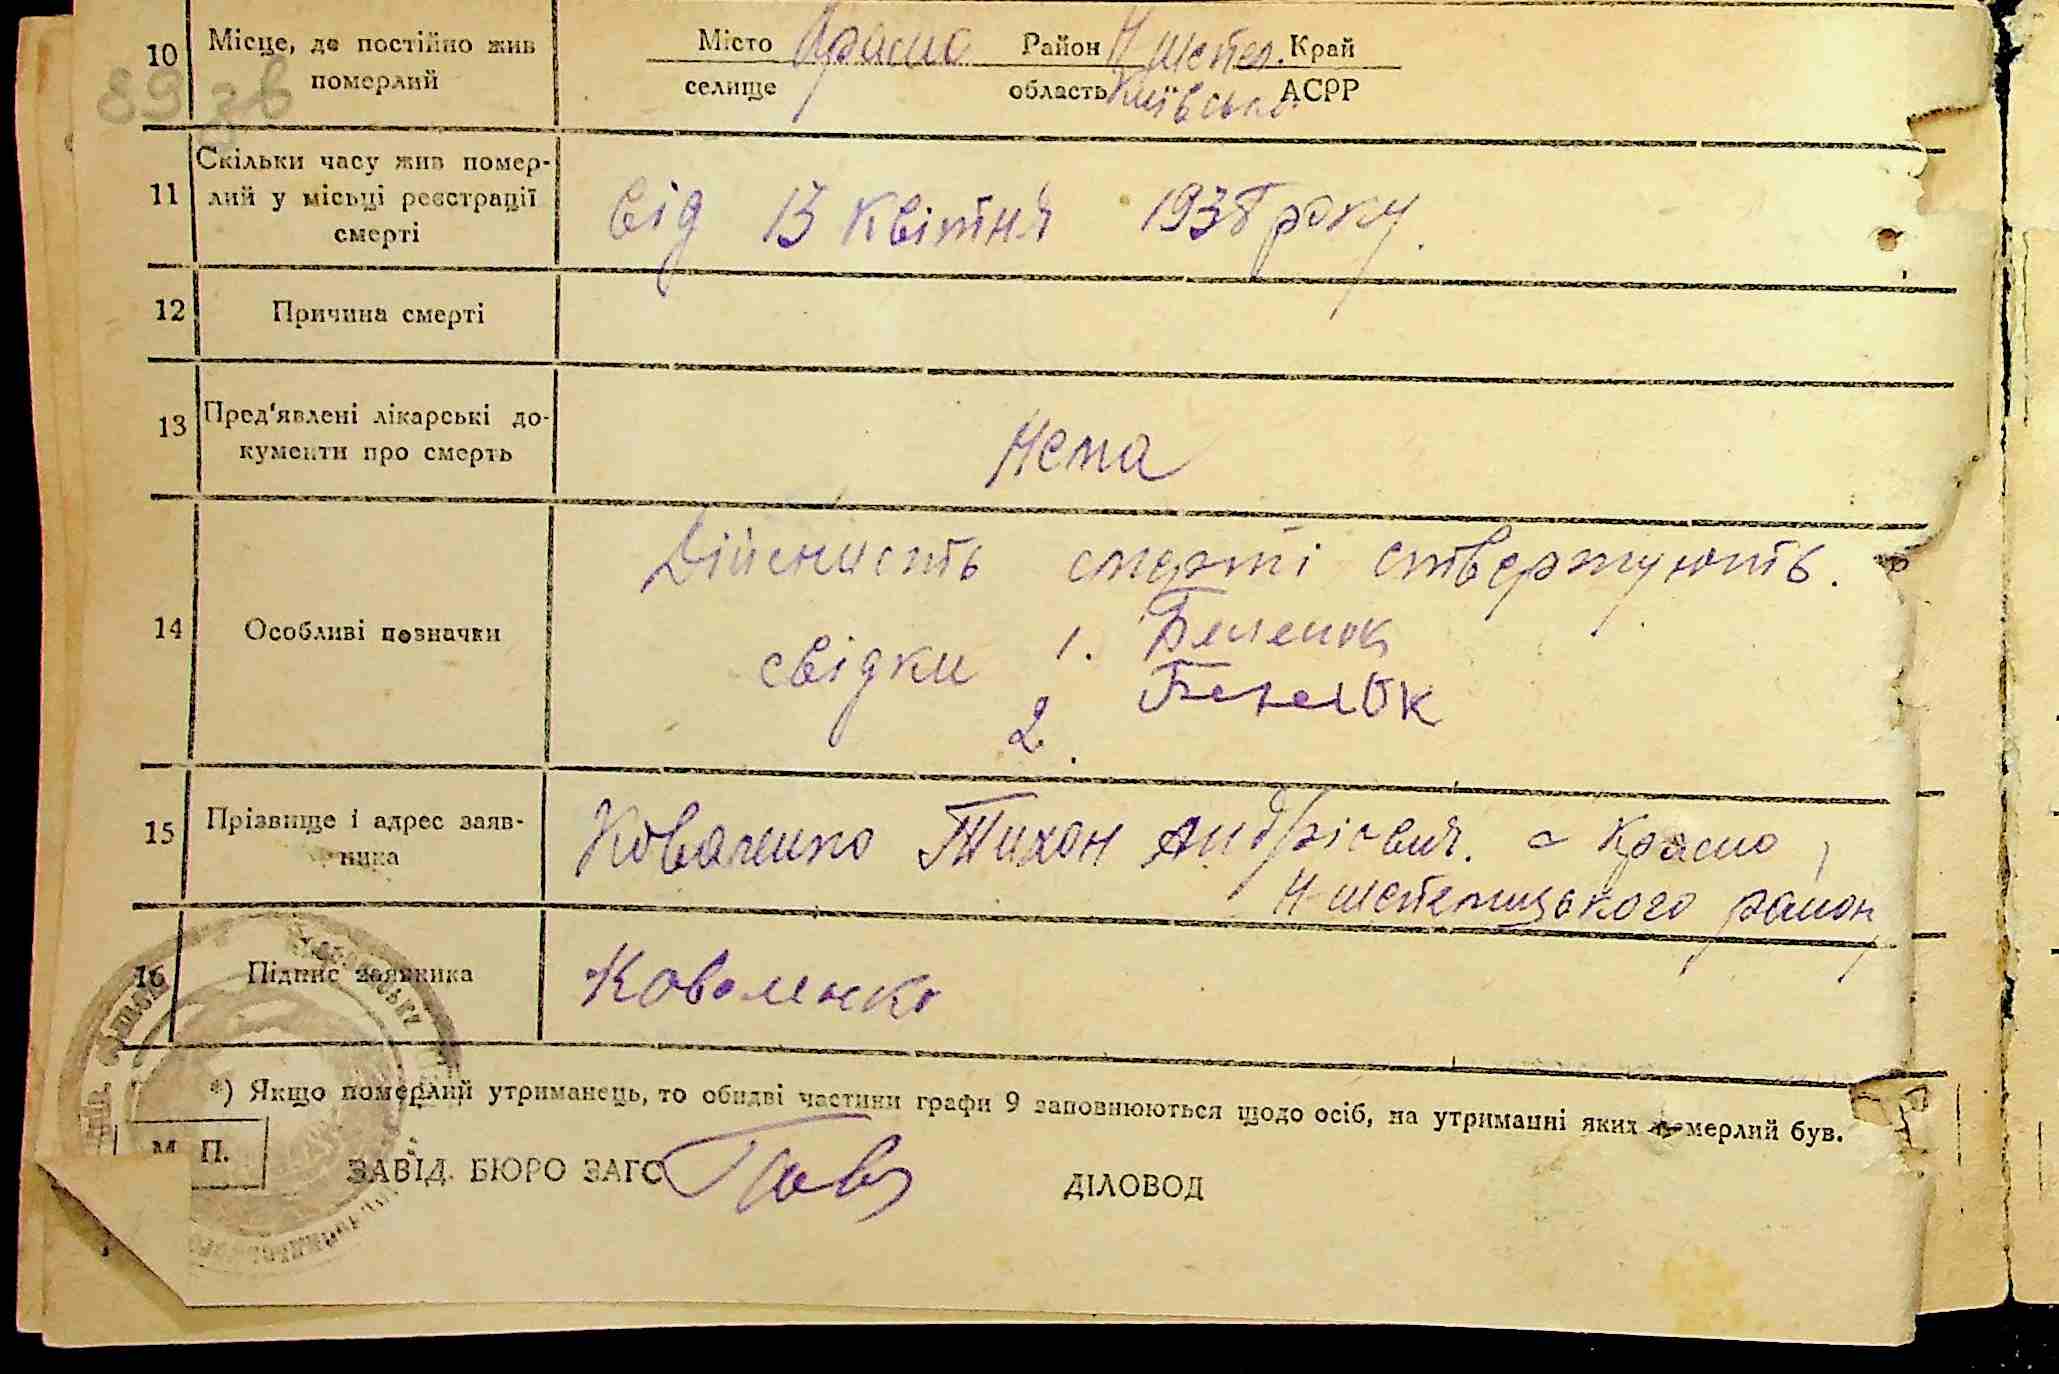 89 зв
10 Місце, де постійно жив померлий Місто селище Красно Район область Н Шепел. Київська Край АСРР
11 Скільки часу жив помер-
лий у місьці реєстрації
смерті
від 13 квітня 1938 року.
12 Причина смерті
13 Пред'явлені лікарські до-
кументи про смерть
Нема
14 Особливі позначки
Дійсність смерті ствержують.
свідки 1.
2.
15 Прізвище і адрес заяв-
ника
Коваленко Тихон Андрієвич. с Красно,
Н-шепелицького району
16 Підпис заявника
Коваленко
*) Якщо померлий утриманець, то обидві частини графи 9 заповнюються щодо осіб, на утриманні яких померлий був.
М. П.
ЗАВІД. БЮРО ЗАГС
ДІЛОВОД